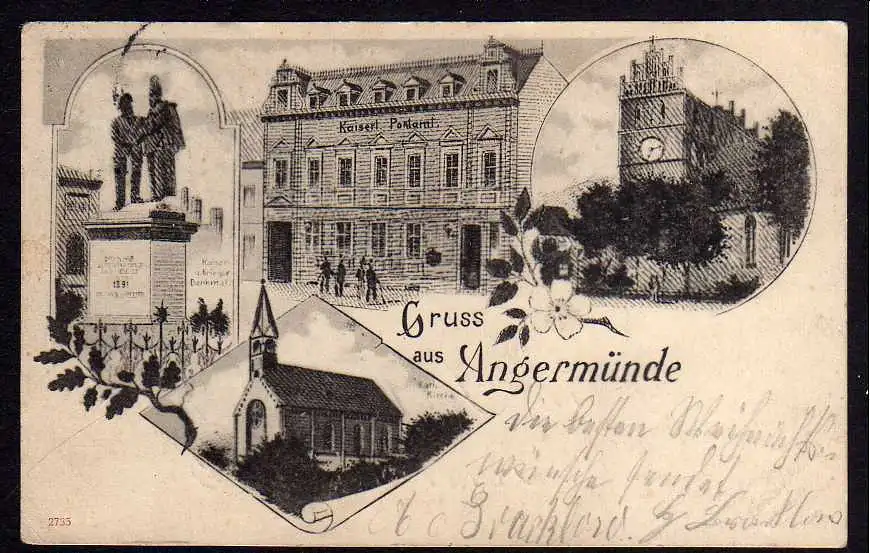 Kaiserl. Postamt.
Kaiser-
u. Krieger
Denkmal.
1891
Gruss
aus Angermünde
Kath.
Kirche
Die besten Weihnachts-
wünsche sendet
2735